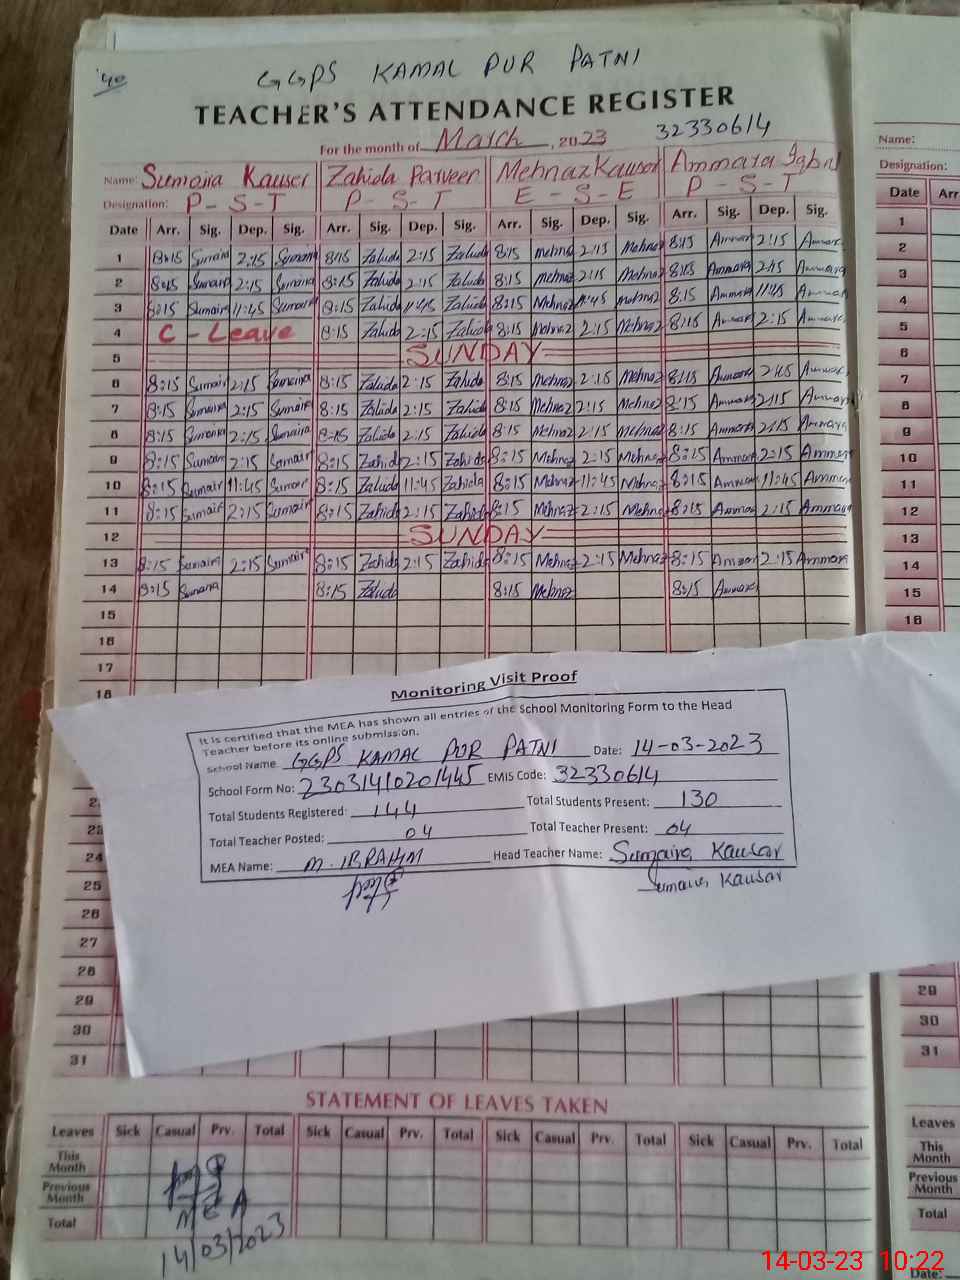 40
GGPS KAMAL PUR PATNI
TEACHER'S ATTENDANCE REGISTER
For the month of March, 2023 32330614
Name: Sumaira Kauser Zahida Parveen Mehnaz Kauser Ammara Iqbal
Designation: P-S-T P-S-T E-S-E P-S-T
Date Arr. Sig. Dep. Sig. Arr. Sig. Dep. Sig. Arr. Sig. Dep. Sig. Arr. Sig. Dep. Sig.
1 8:15 Sumaira 2:15 Sumaira 8:15 Zahida 2:15 Zahida 8:15 Mehnaz 2:15 Mehnaz 8:15 Ammara 2:15 Ammara
2 8:15 Sumaira 2:15 Sumaira 8:15 Zahida 2:15 Zahida 8:15 Mehnaz 2:15 Mehnaz 8:15 Ammara 2:15 Ammara
3 8:15 Sumaira 11:45 Sumaira 8:15 Zahida 11:45 Zahida 8:15 Mehnaz 11:45 Mehnaz 8:15 Ammara 11:45 Ammara
4 C - Leave 8:15 Zahida 2:15 Zahida 8:15 Mehnaz 2:15 Mehnaz 8:15 Ammara 2:15 Ammara
5 SUNDAY
6 8:15 Sumaira 2:15 Sumaira 8:15 Zahida 2:15 Zahida 8:15 Mehnaz 2:15 Mehnaz 8:15 Ammara 2:15 Ammara
7 8:15 Sumaira 2:15 Sumaira 8:15 Zahida 2:15 Zahida 8:15 Mehnaz 2:15 Mehnaz 8:15 Ammara 2:15 Ammara
8 8:15 Sumaira 2:15 Sumaira 8:15 Zahida 2:15 Zahida 8:15 Mehnaz 2:15 Mehnaz 8:15 Ammara 2:15 Ammara
9 8:15 Sumaira 2:15 Sumaira 8:15 Zahida 2:15 Zahida 8:15 Mehnaz 2:15 Mehnaz 8:15 Ammara 2:15 Ammara
10 8:15 Sumaira 11:45 Sumaira 8:15 Zahida 11:45 Zahida 8:15 Mehnaz 11:45 Mehnaz 8:15 Ammara 11:45 Ammara
11 8:15 Sumaira 2:15 Sumaira 8:15 Zahida 2:15 Zahida 8:15 Mehnaz 2:15 Mehnaz 8:15 Ammara 2:15 Ammara
12 SUNDAY
13 8:15 Sumaira 2:15 Sumaira 8:15 Zahida 2:15 Zahida 8:15 Mehnaz 2:15 Mehnaz 8:15 Ammara 2:15 Ammara
14 8:15 Sumaira 8:15 Zahida 8:15 Mehnaz 8:15 Ammara
15
16
17
18
Monitoring Visit Proof
It is certified that the MEA has shown all entries of the School Monitoring Form to the Head
Teacher before its online submission.
School Name GGPS KAMAL PUR PATNI Date: 14-03-2023
School Form No: 23031410201445 EMIS Code: 32330614
Total Students Registered: 144 Total Students Present: 130
Total Teacher Posted: 04 Total Teacher Present: 04
MEA Name: M. IBRAHIM Head Teacher Name: Sumaira Kausar
Sumaira Kausar
24
25
26
27
28
29
30
31
STATEMENT OF LEAVES TAKEN
Leaves Sick Casual Prv. Total Sick Casual Prv. Total Sick Casual Prv. Total Sick Casual Prv. Total
This Month
Previous Month
Total
MEA
14/03/2023
Name:
Designation:
Date Arr
1
2
3
4
5
6
7
8
9
10
11
12
13
14
15
16
29
30
31
Leaves
This Month
Previous Month
Total
Date:
14-03-23 10:22